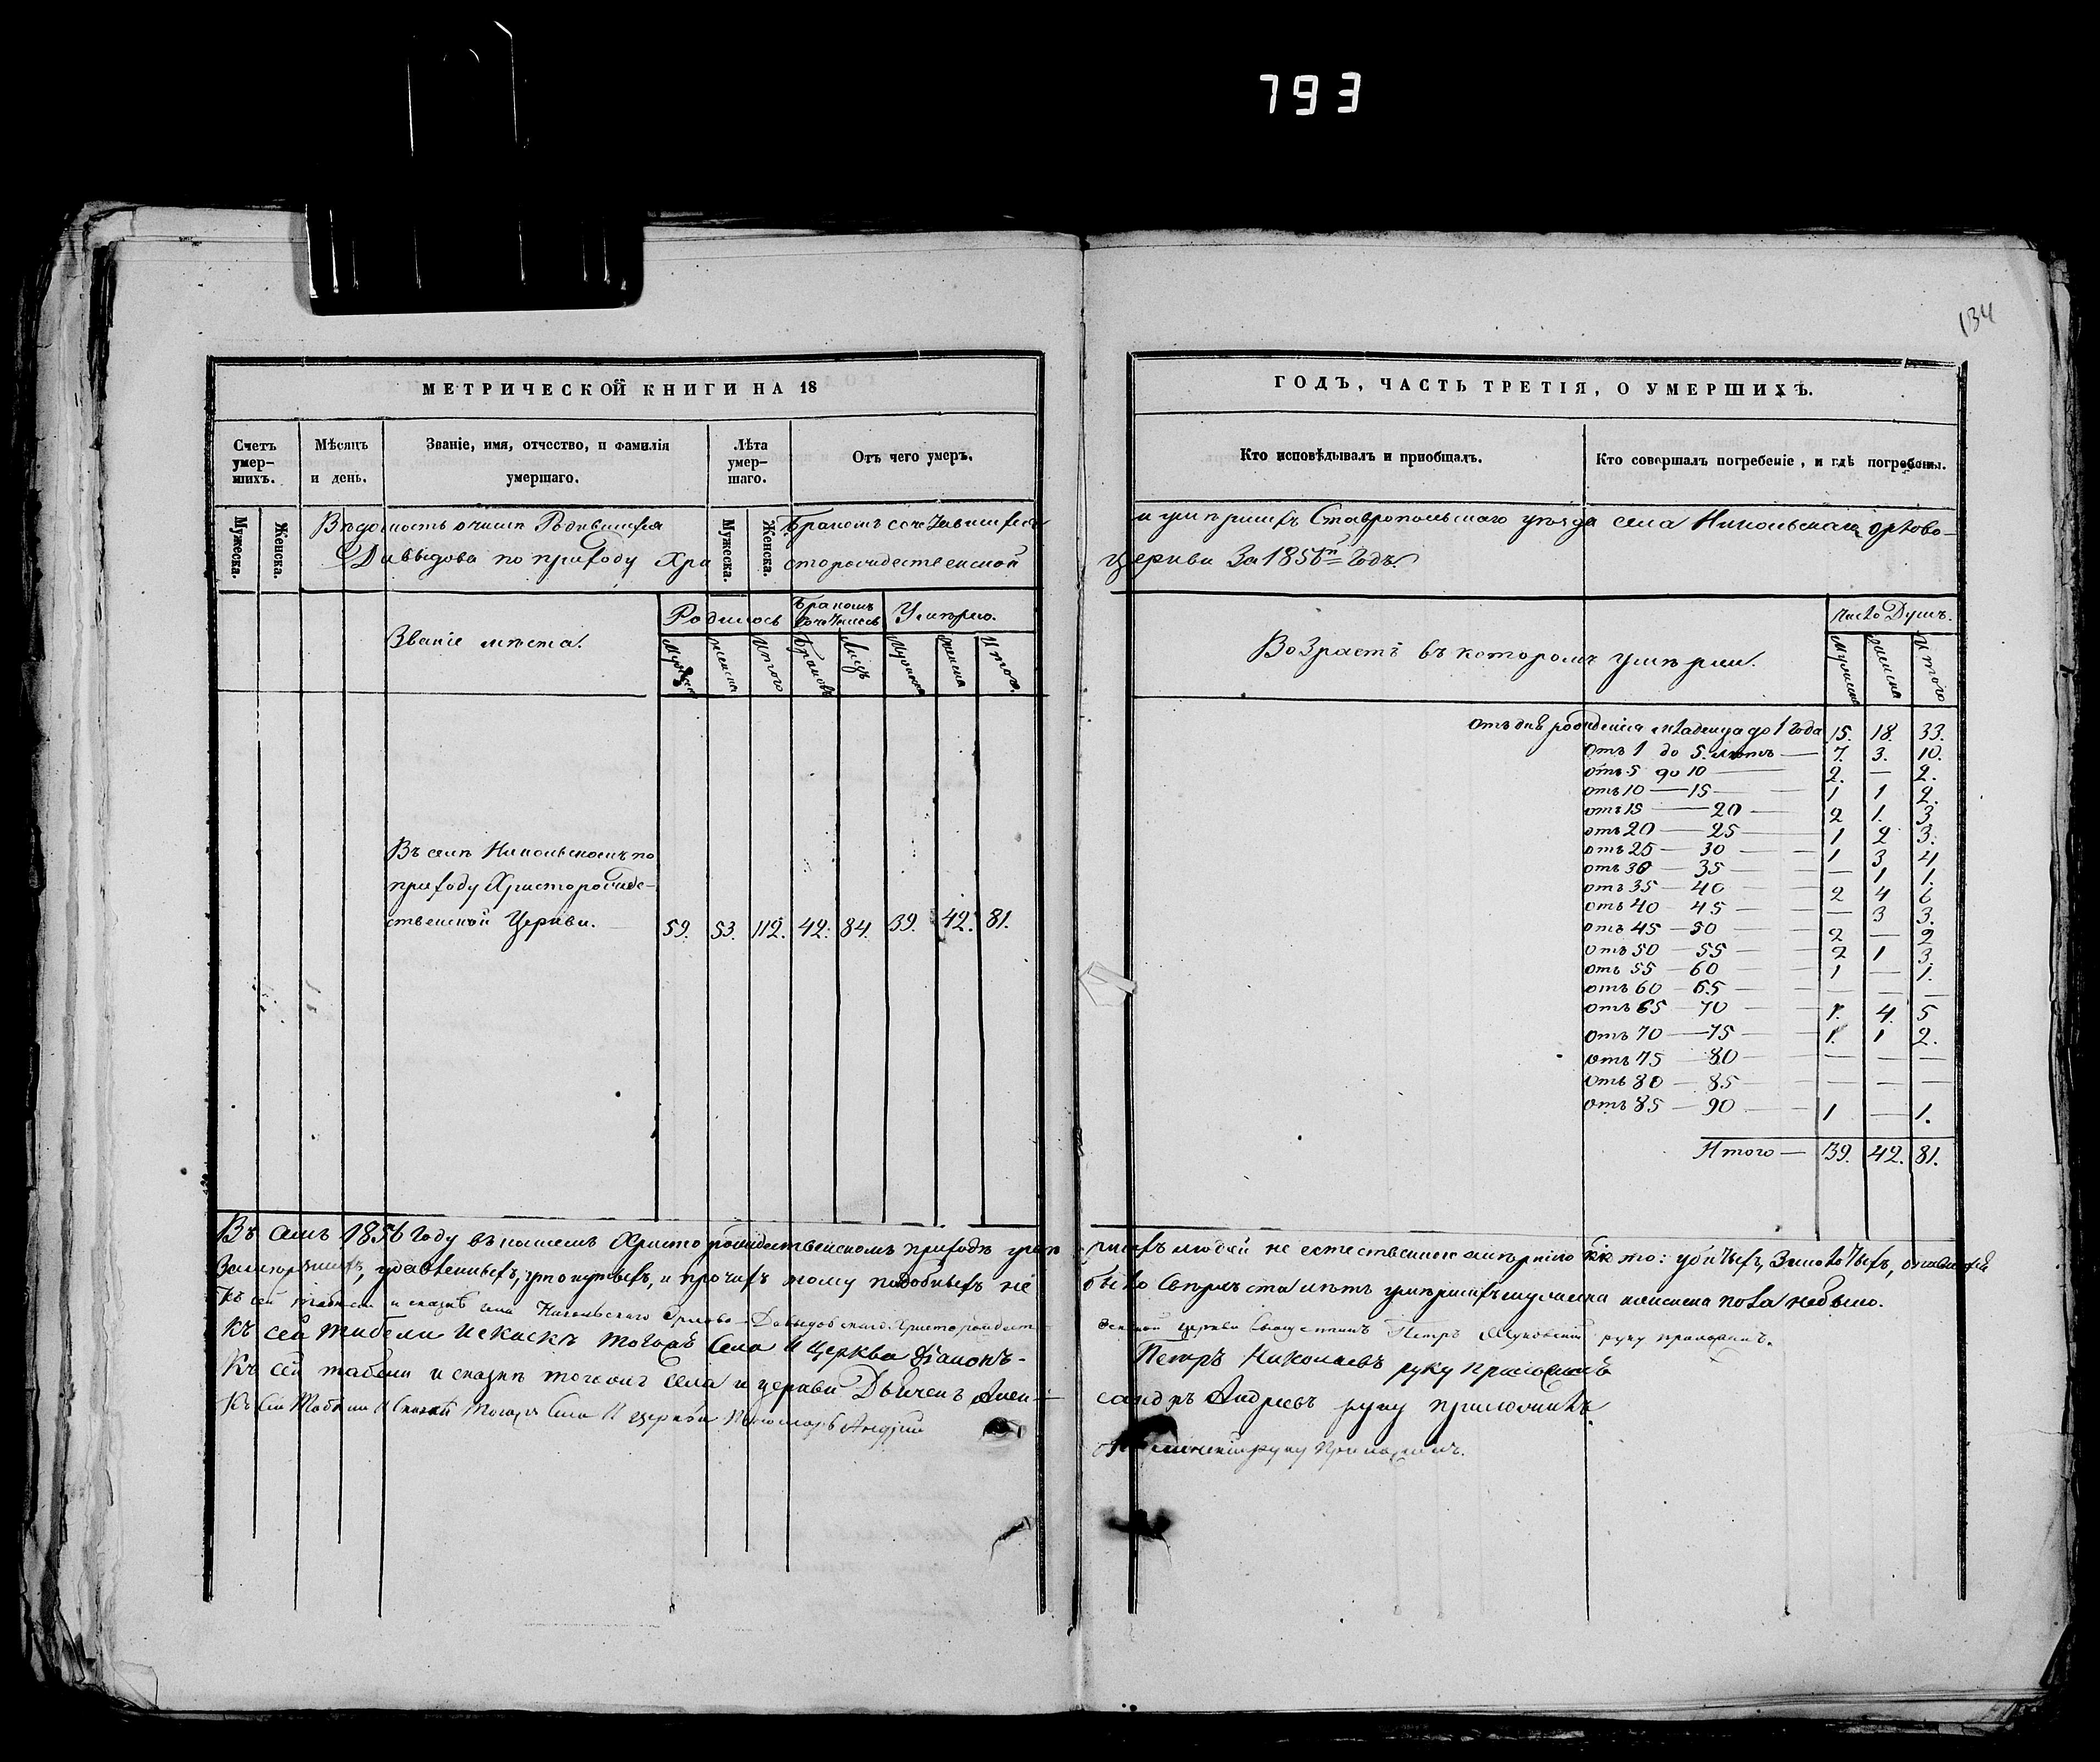 793
134
МЕТРИЧЕСКОЙ КНИГИ НА 18
Счетъ умер-
шихъ.
Мѣсяцъ
и день.
Званіе, имя, отчество, и фамилія
умершаго.
Лѣта
умер-
шаго.
Отъ чего умеръ.
Мужеска.
Женска.
Мужеска.
Женска.
Вѣдомость о числѣ Родившихся Бракомъ сочетавшихся
Давыдова по приходу Христорождественской
Званіе мѣста.
Родилось
Бракомъ
сочетались
Умерло.
Мужеска
женска
Итого
Браковъ
Лицъ
Мужеска
женска
Итого.
Въ селѣ Никольскомъ по
приходу Христорожде-
ственской Церкви. 59. 53. 112. 42. 84. 39. 42. 81.
ГОДЪ, ЧАСТЬ ТРЕТІЯ, О УМЕРШИХЪ.
Кто исповѣдывалъ и пріобщалъ.
Кто совершалъ погребеніе, и гдѣ погребены.
и умершихъ Ставропольскаго уѣзда села Никольскаго Орлово-
церкви За 1856й Годъ.
Возрастъ въ которомъ умерли.
число Душъ.
Мужеска
женска
Итого
Отъ дня рожденія младенца до 1 года 15. 18. 33.
Отъ 1 до 5. лѣтъ — 7. 3. 10.
отъ 5 до 10 — 2. — 2.
отъ 10 — 15 — 1 1 2.
отъ 15 — 20 — 2 1. 3
отъ 20 — 25 — 1 2 3.
отъ 25 — 30 — 1 3 4
отъ 30 — 35 — — 1 1.
отъ 35 — 40 — 2 4 6
отъ 40 — 45 — — 3 3.
отъ 45 — 50 — 2 — 2
отъ 50 — 55 — 2 1 3.
отъ 55 — 60 — 1 — 1.
отъ 60 — 65 — — — —
отъ 65 — 70 — 1. 4. 5
отъ 70 — 75 — 1. 1 2.
отъ 75 — 80 — — — —
отъ 80 — 85 — — — —
отъ 85 — 90 — 1 — 1.
Итого — 39. 42. 81.
Въ семъ 1856 Году въ нашемъ Христорождественскомъ приходѣ умершихъ людей не естественною смертію как то: убитыхъ,
удавленныхъ, утонутыхъ, и прочихъ тому подобныхъ не было Сверхъ ста лѣтъ умершихъ мужеска женска пола небыло.
Къ сей табели и сказкѣ села Никольскаго Орлово-Давыдовскаго Христорождественской церкви Священникъ Петръ руку приложилъ.
Къ сей табели и сказкѣ тогожъ Села и церкви Діаконъ Петръ Николаевъ руку приложилъ
Къ сей табели и сказкѣ тогожъ села и церкви Дьячекъ Александръ Андреевъ руку приложилъ.
Къ сей табели и сказкѣ тогожъ села и церкви Пономарь Андрей руку приложилъ.